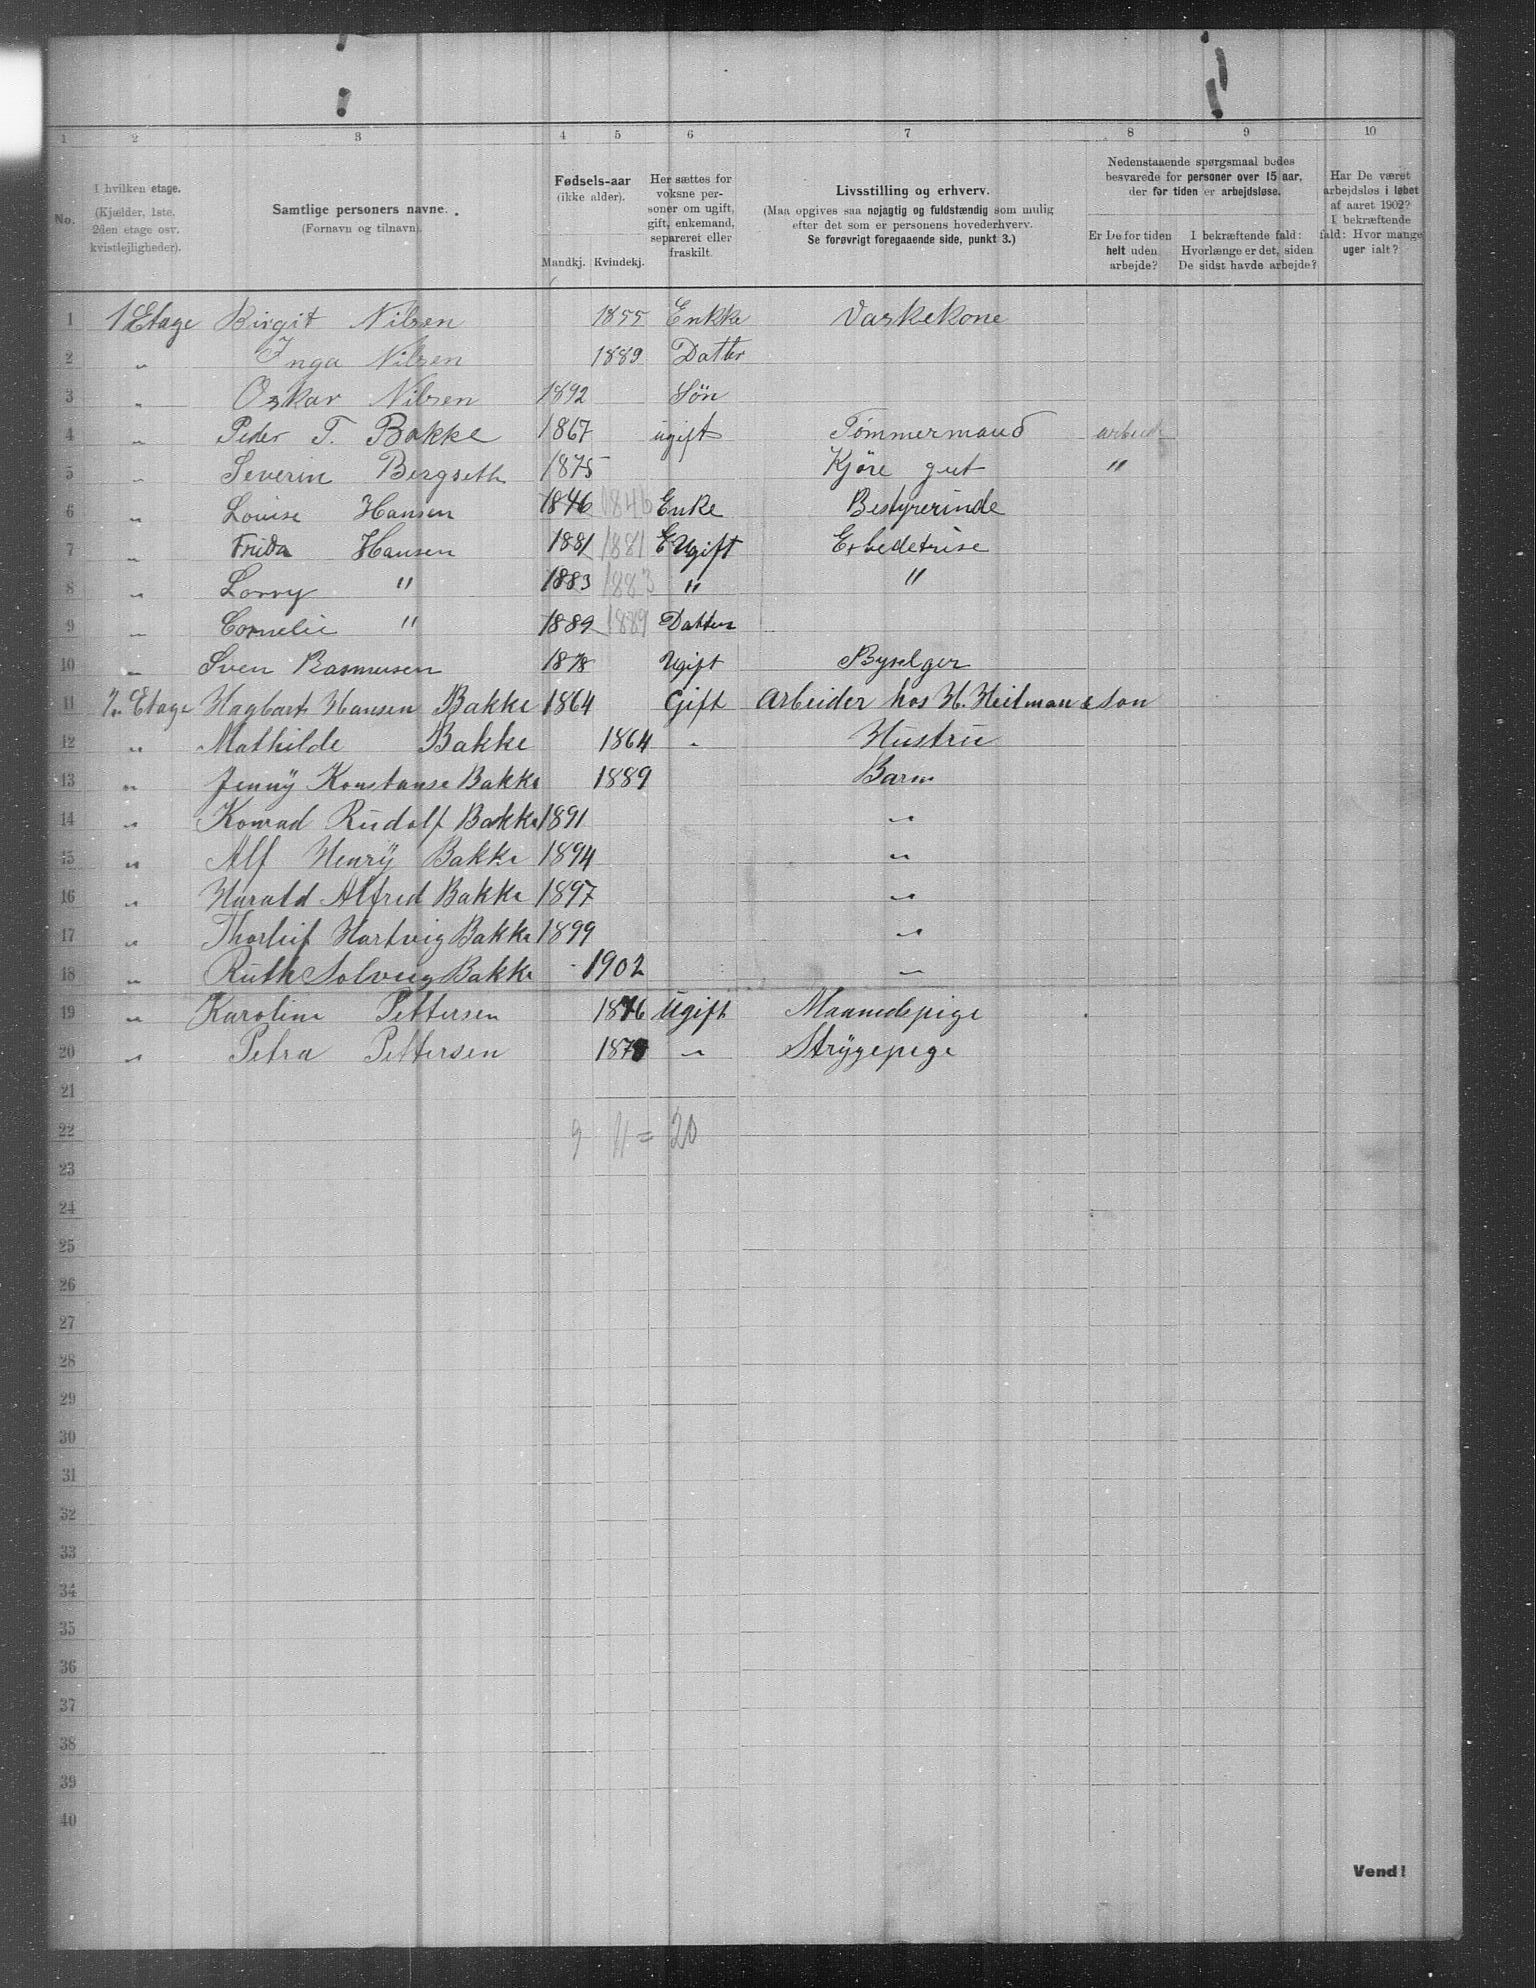 1 2 3 4 5 6 7 8 9 10
No.
I hvilken etage. (Kjælder, 1ste, 2den etage osv. kvistlejligheder).
Samtlige personers navne. (Fornavn og tilnavn).
Fødsels-aar (ikke alder).
Mandkj. Kvindekj.
Her sættes for voksne personer om ugift, gift, enkemand, separeret eller fraskilt.
Livsstilling og erhverv. (Maa opgives saa nøjagtig og fuldstændig som mulig efter det som er personens hovederhverv. Se forøvrigt foregaaende side, punkt 3.)
Nedenstaaende spørgsmaal bedes besvarede for personer over 15 aar, der for tiden er arbejdsløse.
Er De for tiden helt uden arbejde?
I bekræftende fald: Hvorlænge er det, siden De sidst havde arbejde?
Har De været arbejdsløs i løbet af aaret 1902? I bekræftende fald: Hvor mange uger ialt?
1 1 Etage Birgit Nilsen 1855 Enkke Vaskekone
2 " Inga Nilsen 1889 Datter
3 " Oskar Nilsen 1892 Søn
4 " Peder T. Bakke 1867 ugift Tømmermand arbeide
5 " Severin Bergseth 1875 Kjøre gut "
6 " Louise Hansen 1846 1846 Enke Bestyrerinde
7 " Frida Hansen 1881 1881 E Ugift Exbedetrise
8 " Lovvy " 1883 1883 " "
9 " Cornelie " 1889 1889 Datter
10 " Sven Rasmussen 1878 Ugift Byselger
11 2. Etage Hagbart Hansen Bakke 1864 Gift Arbeider hos H. Heitman & Søn
12 " Mathilde Bakke 1864 " Hustru
13 " Jenny Konstanse Bakke 1889 Barn
14 " Konrad Rudolf Bakke 1891 "
15 " Alf Henry Bakke 1894 "
16 " Harald Alfred Bakke 1897 "
17 " Thorleif Hartvig Bakke 1899 "
18 " Ruth Solveig Bakke 1902 "
19 " Karoline Pettersen 1876 Ugift Maanedspige
20 " Petra Pettersen "  Strygepige
21
22 9 11 = 20
23
24
25
26
27
28
29
30
31
32
33
34
35
36
37
38
39
40
Vend!